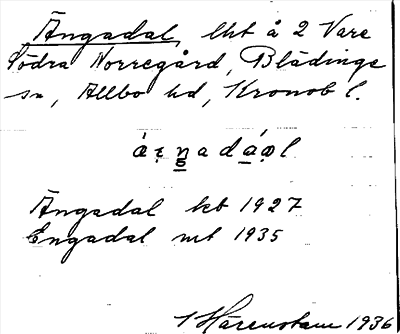 Ängadal, lht å 2 Vare
Södra Norregård, Blädinge
sn, Allbo hd, Kronob l.
Ängadal kbt 1927
Engadal mt 1935
Härenstam 1936